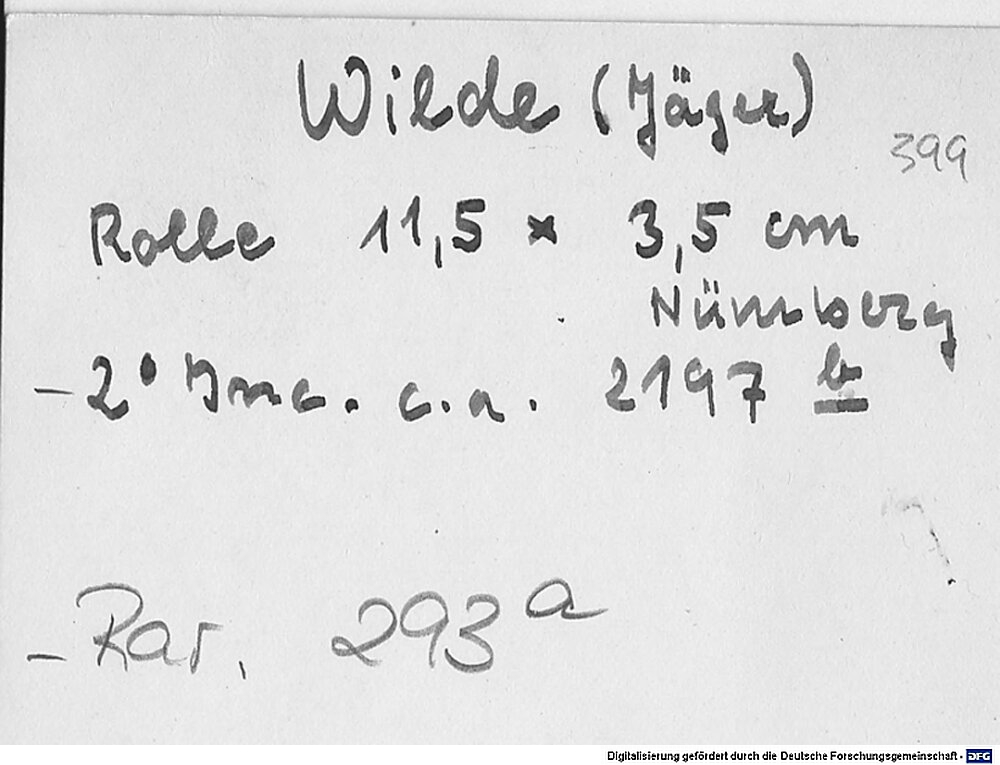 Wilde (Jäger)
399
Rolle 11,5 x 3,5 cm
Nürnberg
- 2° Inc. c.a. 2197 b
- Rar. 293 a
Digitalisierung gefördert durch die Deutsche Forschungsgemeinschaft - DFG